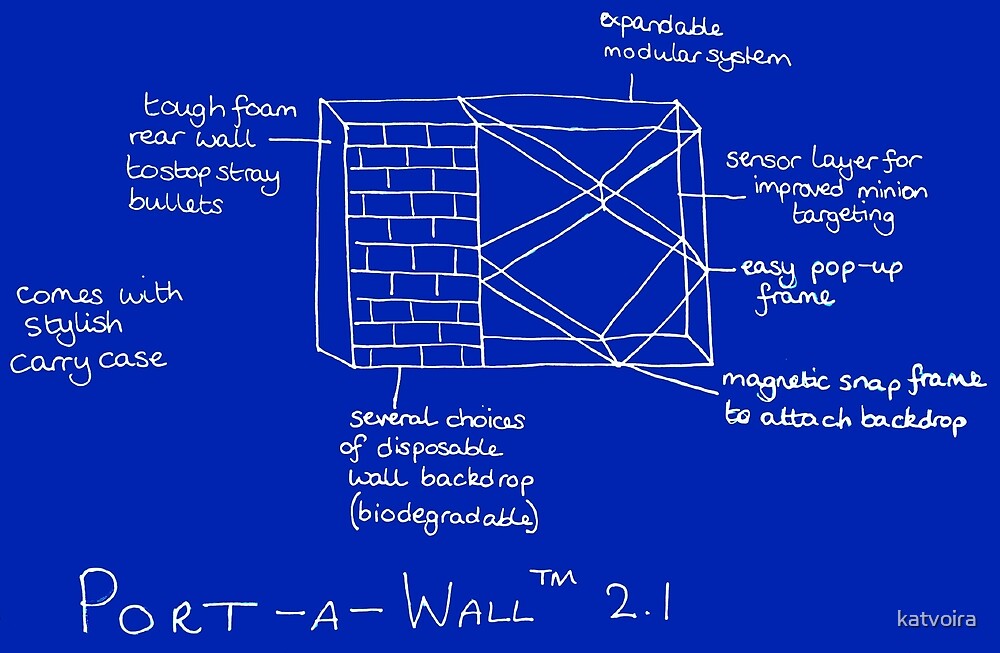 expandable
modular system
tough foam
rear wall
to stop stray
bullets
sensor layer for
improved minion
targeting
easy pop-up
frame
comes with
stylish
carry case
magnetic snap frame
to attach backdrop
several choices
of disposable
wall backdrop
(biodegradable)
PORT-A-WALL™ 2.1
katvoira